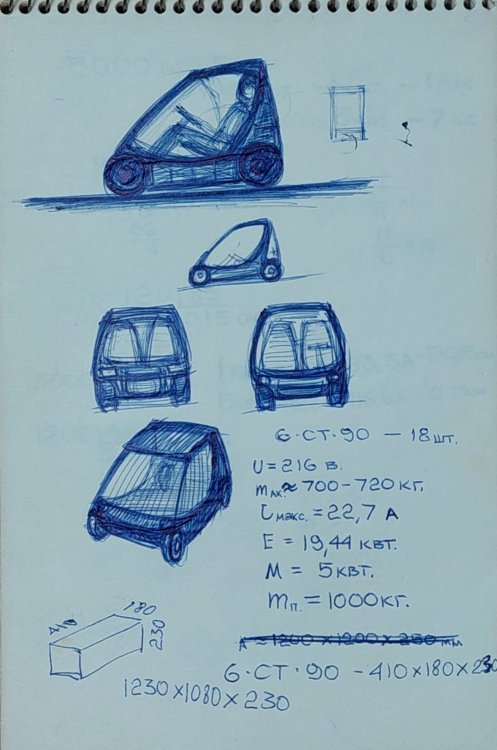 6·СТ·90 – 18 шт.
U = 216 В.
mак. ≈ 700-720 кг.
Iмакс. = 22,7 А
E = 19,44 квт.
M = 5 квт.
mп. = 1000 кг.
180
230
А ≈ 1200 х 1200 х 250 мм
6·СТ·90 – 410х180х230
1230х1080х230